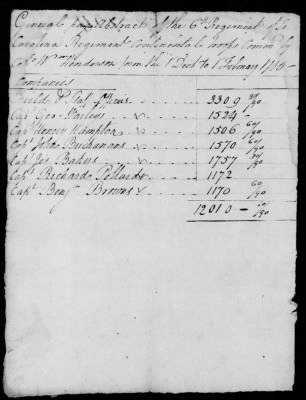 General Pay Abstract of the 6th Regiment of So
Carolina Regiment Continental Troops Comm'd by
Colo Wm Henderson from the 1 Decr to 1 February 1779
Companies
Field & Staf officers 3309 30/90
Cap Geo Warleys 1524 -
Cap Henery Hamptons 1506 60/90
Capt John Buchanans 1570 60/90
Capt Jes Bakers 1757 30/90
Capt Richards Pollards 1172
Capt Benj Browns 1170 60/90
12010 - 60/90